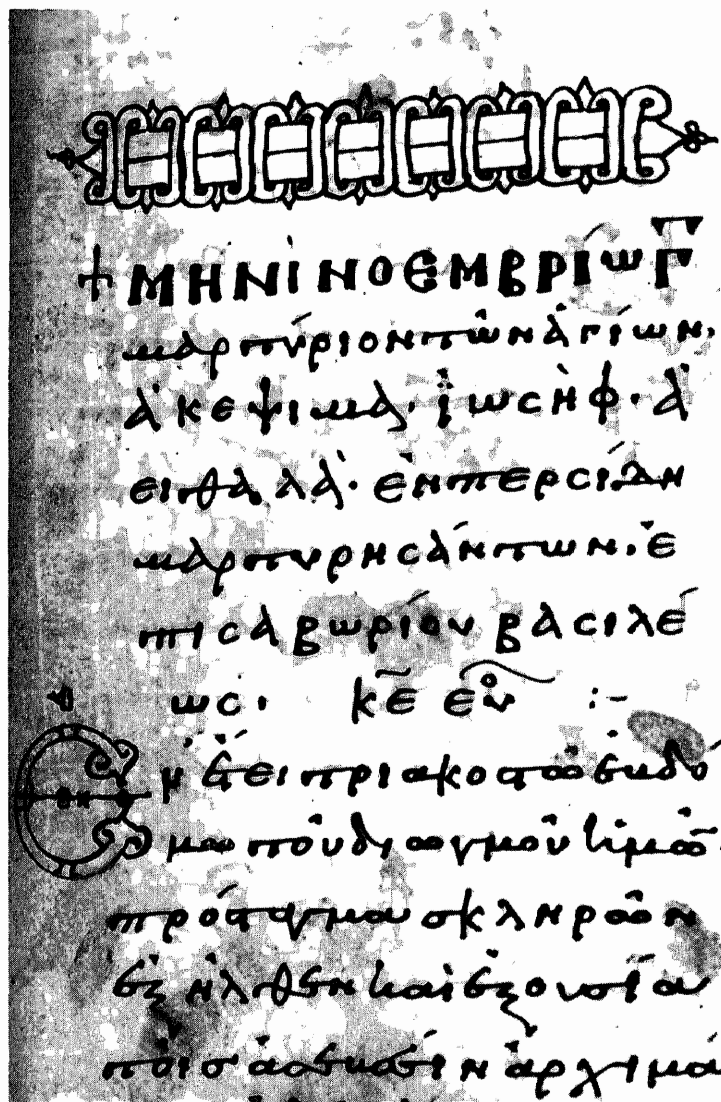 + ΜΗΝΙ ΝΟΕΜΒΡΙΩ Γ
μαρτύριον τῶν ἁγίων·
ἀκεψιμᾶ· ἰωσὴφ· ἀ
ειθαλᾶ· ἐν περσίδι
μαρτυρησάντων· ἐ
πὶ σαβωρίου βασιλέ
ως· κε ευ :-
α
Ἐν ἔτει τριακοστῷ ἑβδό
μω τοῦ διωγμοῦ ἡμῶν
πρόσταγμα σκληρὸν
ἐξῆλθεν καὶ ἐξουσία
τοῖς ἀρχιμά